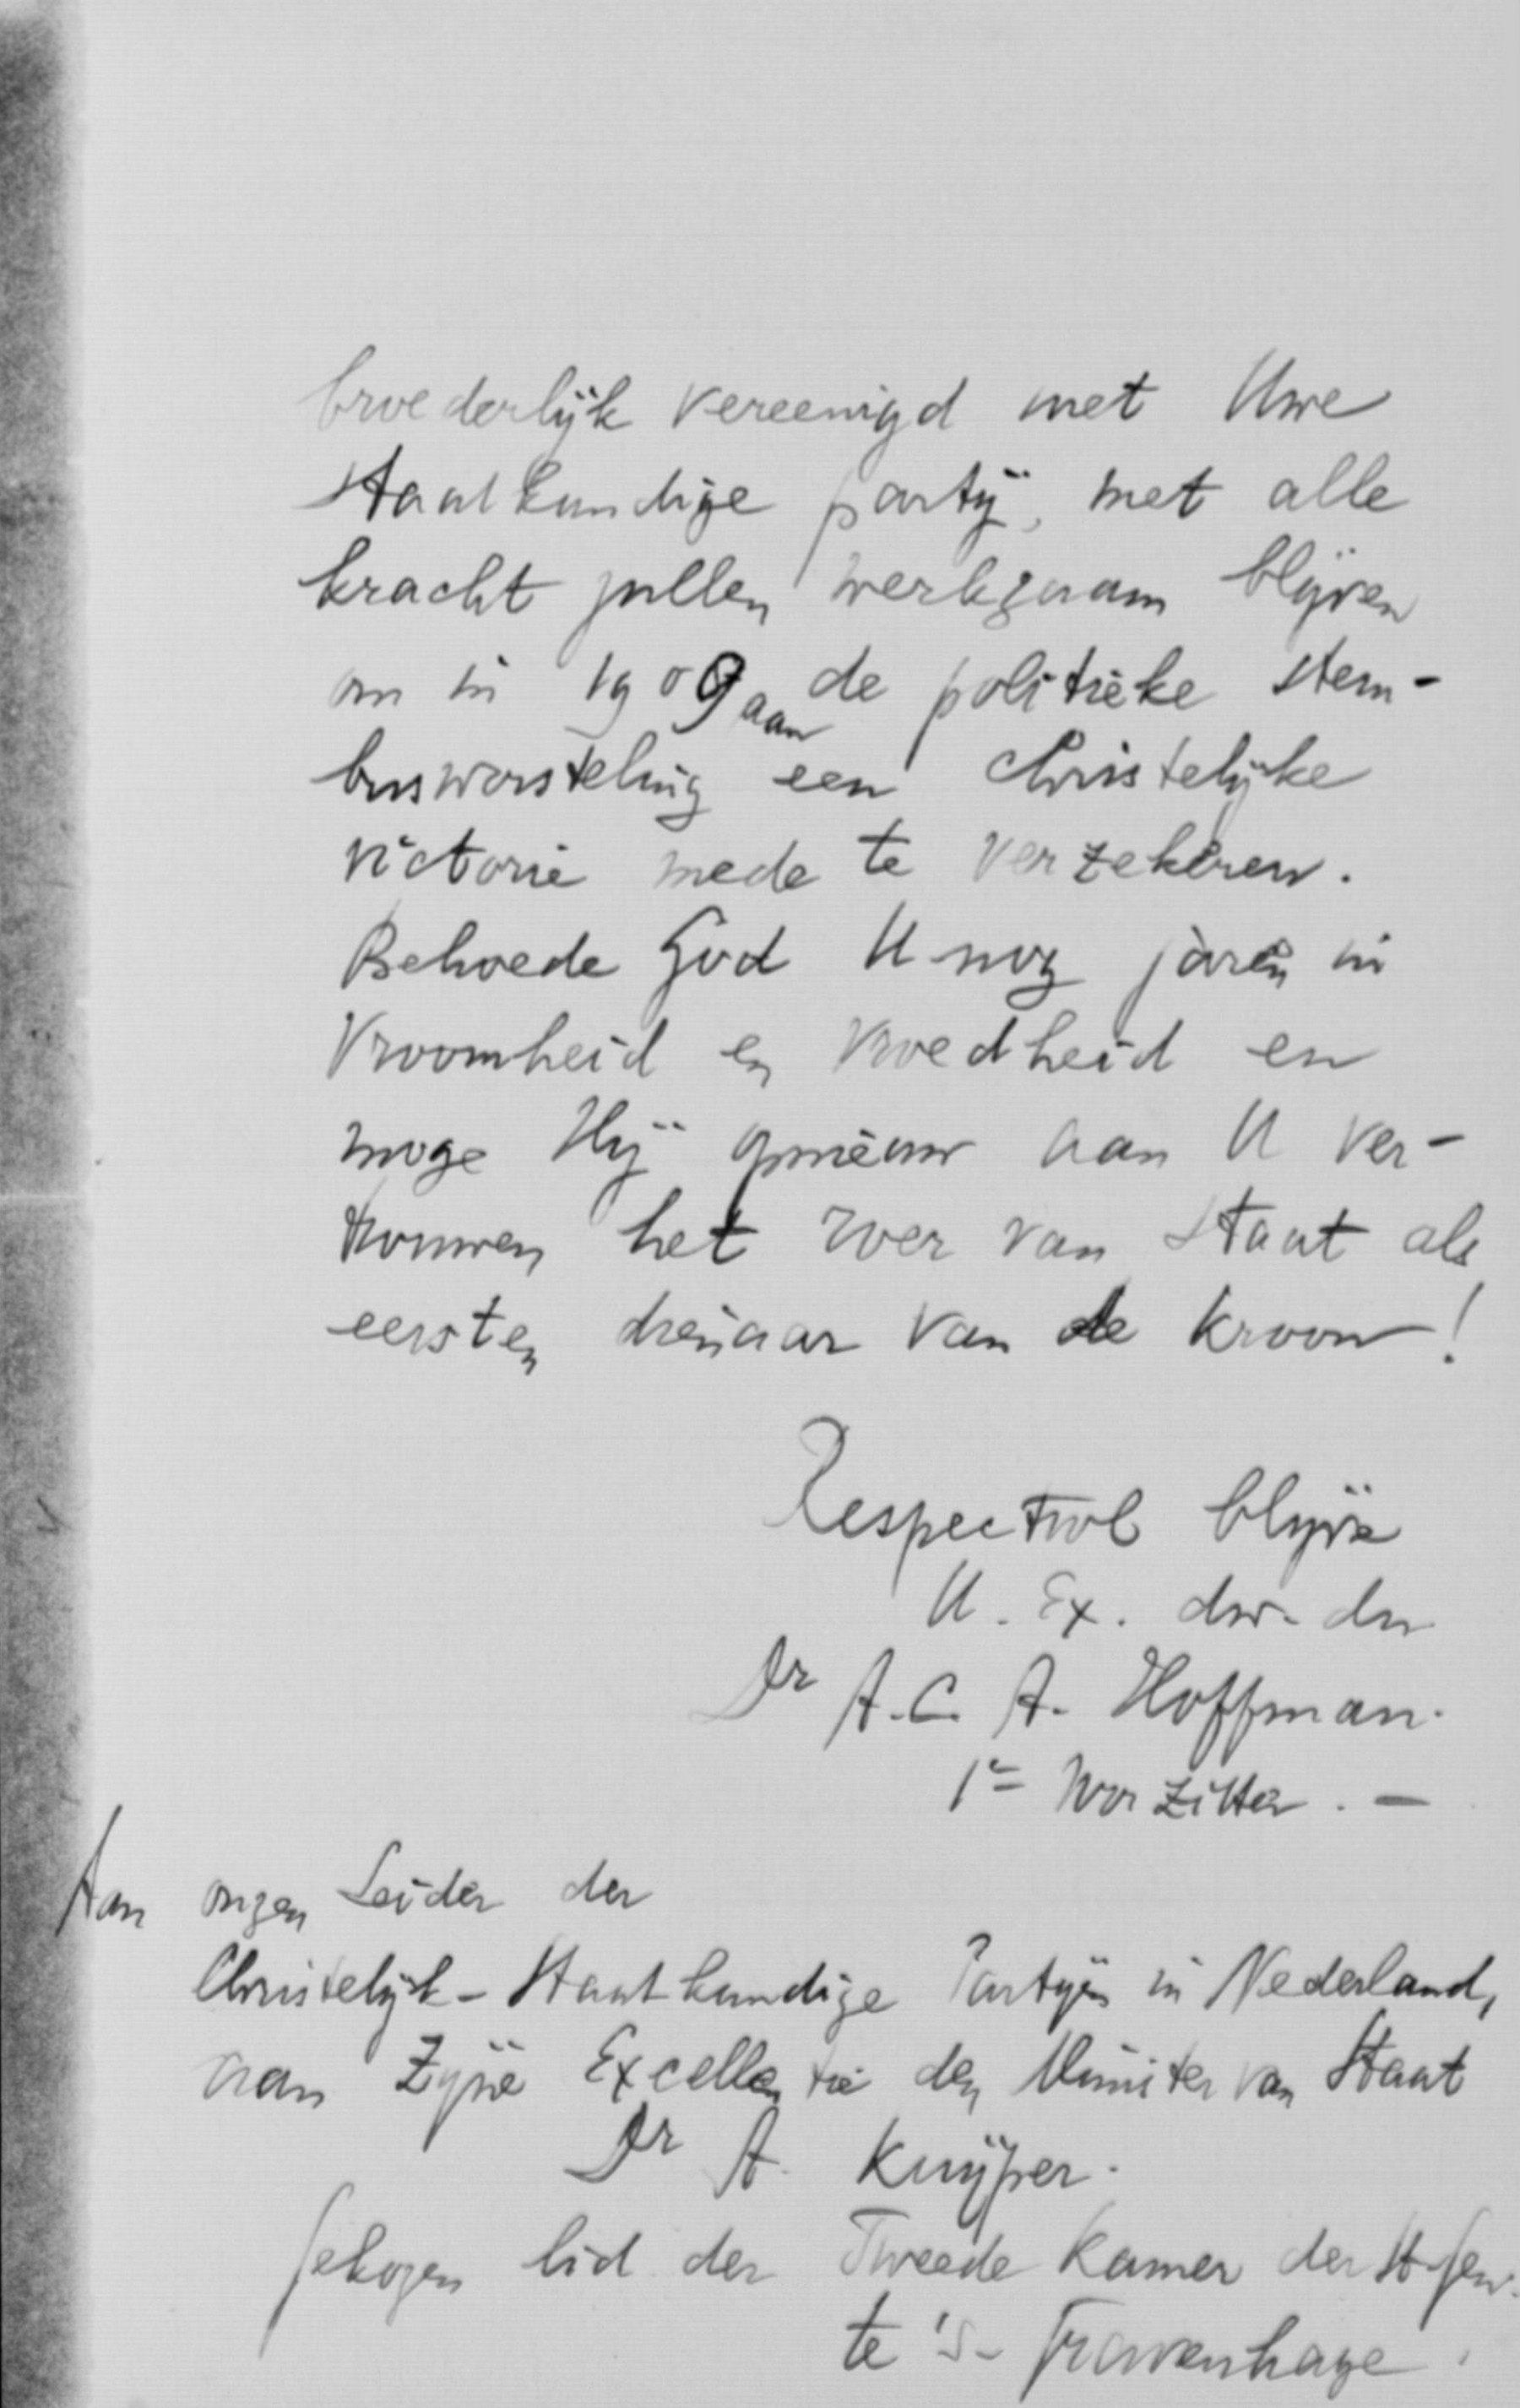 broederlijk vereenigd met Uwe
staatkundige partij, met alle
kracht zullen werkzaam blijven
om in 1909 aan de politieke stem-
busworsteling een Christelijke
victorie mede te verzekeren.
Behoede God U nog jaren in
Vroomheid en Vroedheid en
moge Hij opnieuw aan U ver-
trouwen het roer van Staat als
eersten dienaar van de kroon!
Respectvol blijve
U. Ex. dw. dr
Dr A. C. A. Hoffman.
1e Voorzitter. —
Aan onzen Leider der
Christelijk-Staatkundige Partijen in Nederland,
aan Zijne Excellentie den Minister van Staat
Dr A. Kuijper.
gekozen lid der Tweede Kamer der St. Gen.
te 's-Gravenhage.